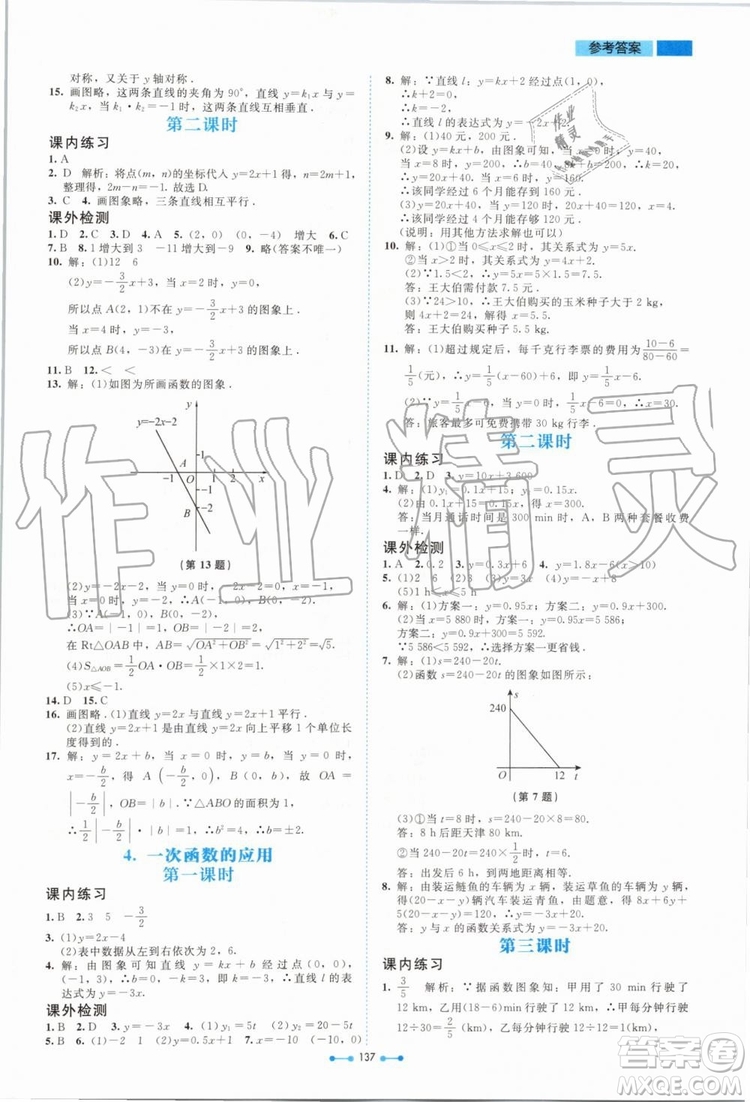 参考答案
对称,又关于 y 轴对称.
15. 画图略,这两条直线的夹角为 90°,直线 y=k₁x 与 y=
k₂x,当 k₁·k₂=-1 时,这两条直线互相垂直.
第二课时
课内练习
1. A
2. D 解析:将点(m,n)的坐标代入 y=2x+1 得,n=2m+1,
整理得,2m-n=-1.故选 D.
3. C 4. 画图象略,三条直线互相平行.
课外检测
1. D 2. C 3. D 4. A 5. (2,0) (0,-4) 增大 6. C
7. B 8. 1 增大到 3 -11 增大到-9 9. 略(答案不唯一)
10. 解:(1)12 6
(2)y=-3/2x+3,
所以点 A(2,1)不在 y=-3/2x+3 的图象上,
所以点 B(4,-3)在 y=-3/2x+3 的图象上.
11. B 12. < <
13. 解:(1)如图为所画函数的图象.
y
y=-2x-2
1
A
-1 O 1 2 3 x
-1
B
-2
(第 13 题)
(2)y=-x-2,当 y=0 时,x=-1,当 x=0 时,y=-2.
(3)∵A(-1,0),B(0,-2),
∴OA=|-1|=1,OB=|-2|=2.
在 Rt△OAB 中,AB=√OA²+OB²=√1²+2²=√5.
(4)S△AOB=1/2OA·OB=1/2×1×2=1.
(5)x≤-1.
14. D 15. C
16. 画图略.(1)直线 y=2x 与直线 y=2x+1 平行.
(2)直线 y=2x+1 是由直线 y=2x 向上平移 1 个单位长
度得到的.
17. 解:y=2x+b,当 x=0 时,y=b,当 y=0 时,x=
-b/2,所以 A(-b/2,0),B(0,b),所以 OA=
|-b/2|,OB=|b|.∵△ABO 的面积为 1,
∴1/2|-b/2|·|b|=1,∴b²=4,∴b=±2.
4. 一次函数的应用
第一课时
课内练习
1. B 2. 3 5 -3/2
3. (1)y=2x-4
(2)表中数据从左到右依次为 2,6.
4. 解:∵图象经过点(-1,3),∴y=kx 中,当 x=-1 时,y=3.
∴(-1,3)满足关系式,即-k=3,∴k=-3.∴此函数的
表达式为 y=-3x.
课外检测
1. B 2. B 3. y=-3x 4. (1)y=5t (2)0≤t≤20
5. B 6. (-1,2) 1 (2)y=0.5x+1 7. x=-2 (0,1)
8. 解:∵直线 l:y=kx+2 经过点(-1,0),
∴-k+2=0,∴k=2,
∴直线 l 的表达式为 y=2x+2.
9. 解:(1)40 元,200 元.
(2)设 y=kx+40,由图象可知,当 x=4 时,y=120.
当 x=6 时,y=160.
∴该同学经过 6 个月能存到 160 元.
(3)y=20x+40,当 y=120 时,20x+40=120,x=4.
∴该同学经过 4 个月能存够 120 元.
(说明:用其他方法求解也可以)
10. 解:(1)①当 0≤x≤2 时,其关系式为 y=5x.
②当 x>2 时,其关系式为 y=4x+2.
(2)∵1.5<2,∴y=5x=5×1.5=7.5.
答:王大伯需付款 7.5 元.
(3)∵24>10,∴王大伯购买的玉米种子大于 2 kg,
则 4x+2=24,x=5.5.
答:王大伯购买了玉米种子 5.5 kg.
11. 解:(1)超过规定后,每千克行李票的费用为10-6/80-60=
1/5(元),∴y-6=1/5(x-60),即 y=1/5x-6.
(2)∵y=1/5x-6,当 y=0 时,1/5x-6=0,∴x=30.
答:旅客最多可免费携带 30 kg 行李.
第二课时
课内练习
1. D 2. D 3. y=10x+3 600
4. 解:(1)y₁=0.1x+15;y₂=0.15x.
(2)由 y₁=y₂ 得:0.1x+15=0.15x,x=300.
答:当月通话时间是 300 min 时,A、B 两种套餐收费
一样.
课外检测
1. A 2. 0.2 3. y=0.3x+6 4. y=1.8x-6(x>10)
5. (1)2 6 (2)3 (3)y=3x (4)y=-x+8
(5)1 h≤t≤
6. 解:(1)方案一:y=0.95x;方案二:y=0.9x+300.
(2)当 x=5 880 时,方案一:y=0.95x=5 586(元),
方案二:y=0.9x+300=5 592(元).
∵5 586<5 592,∴选择方案一更省钱.
7. 解:(1)s=240-20t.
(2)函数 s=240-20t 的图象如图所示:
s
240
O 12 t
(第 7 题)
(3)①当 t=8 时,s=240-20t=80.
答:8 h后距天津 80 km.
②当 240-20t=40 时,t=10.
答:出发后 10 h,两地距离相距 40 km.
8. 解:由装运鲢鱼的车辆为 x,装运草鱼的车辆为 y,则有
(20-x-y)辆汽车装运青鱼,由题意,得
8x+6y+5(20-x-y)=120,∴y=-3x+20.
答:y 与 x 的函数关系式为 y=-3x+20.
第三课时
课内练习
1. 3/5 解析:∵据函数图象知:甲用了 30 min 行驶了
12 km,乙用(18-6)min 行驶了 12 km,∴甲每分钟行驶
12÷30=2/5(km),乙每分钟行驶 12÷12=1(km).
137
作业精灵
答案圈
MXQE.COM